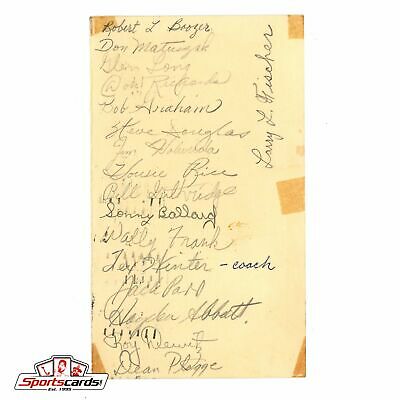 Robert L Boozer
Don Matuszak
Glenn Long
Don Richards
Bob Graham
Steve Douglas
Jim Holwerda
Howie Rice
Bill Guthridge
Sonny Ballard
Wally Frank
Tex Winter - coach
Jack Parr
Hayden Abbott
Roy DeWitz
Dean Plagge
Larry L. Fischer
Sportscards!
EST. 1993
.com